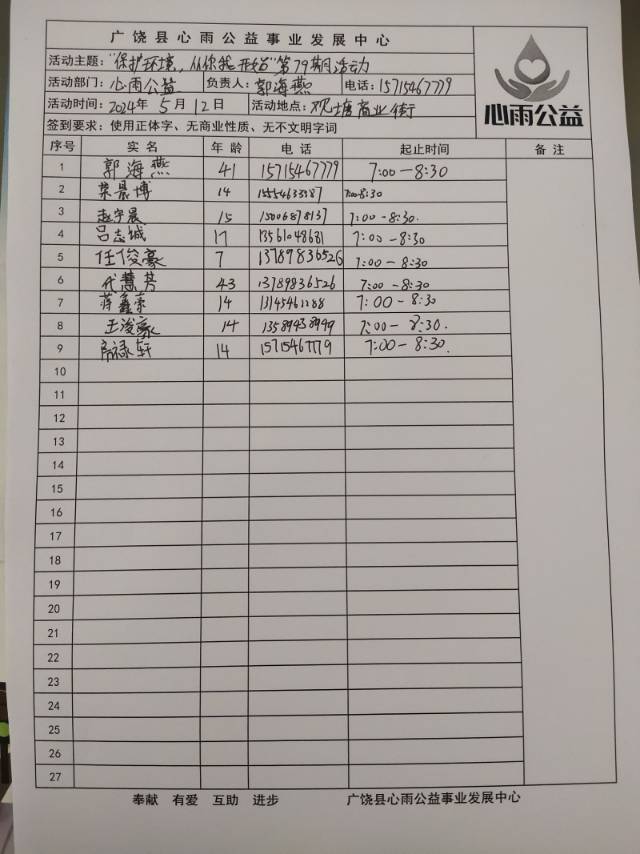 广饶县心雨公益事业发展中心
活动主题："保护环境，从你我开始"第79期活动
活动部门：心雨公益 负责人：郭海燕 电话：15715467779
活动时间：2024年5月12日 活动地点：观塘商业街
签到要求：使用正体字、无商业性质、无不文明字词
心雨公益
序号 实名 年龄 电话 起止时间 备注
1 郭海燕 41 15715467779 7:00-8:30
2 荣景博 14 7:00-8:30
3 赵宇晨 15 15006878137 7:00-8:30.
4 吕志诚 17 13561048681 7:00-8:30
5 任俊豪 7 13789836526 7:00-8:30
6 代慧芳 43 13789836526 7:00-8:30
7 蒋鑫 14 7:00-8:30
8 王浚豪 14 13589438999 7:00-8:30.
9 禄轩 14 15715467779 7:00-8:30.
10
11
12
13
14
15
16
17
18
19
20
21
22
23
24
25
26
27
奉献 有爱 互助 进步 广饶县心雨公益事业发展中心